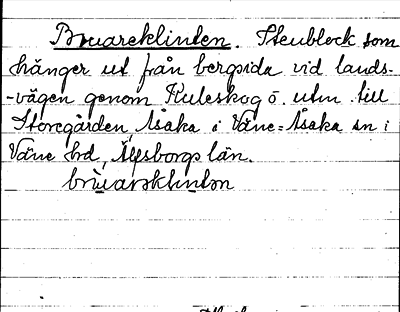 Bruareklinten. Stenblock som
hänger ut från bergsida vid lands-
-vägen genom Kuleskog ö. utm. till
Storegården, Åsaka i Väne-Åsaka sn i
Väne hd, Älfsborgs län.